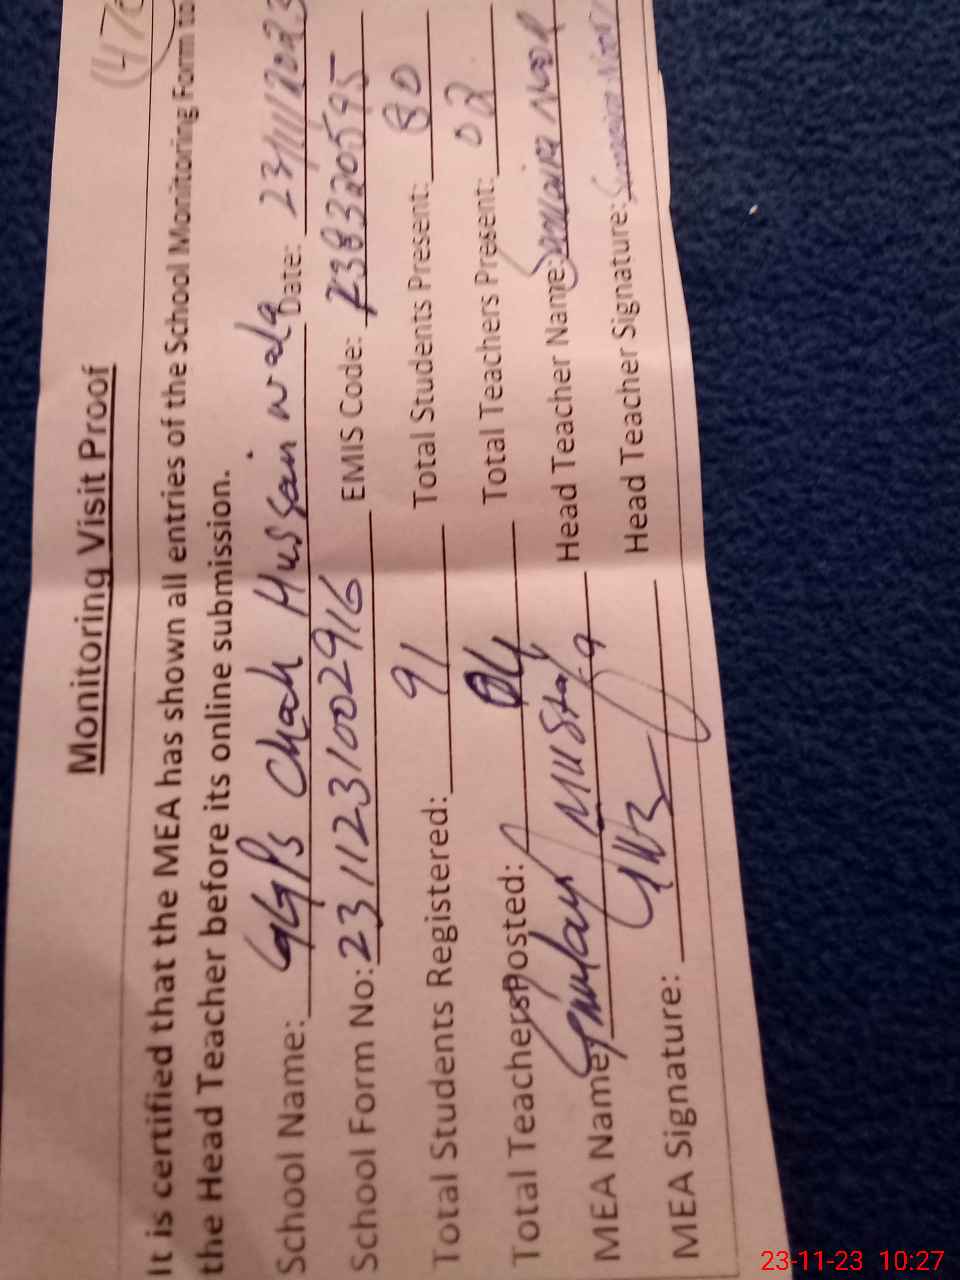 (476
Monitoring Visit Proof
It is certified that the MEA has shown all entries of the School Monitoring Form to
the Head Teacher before its online submission.
School Name: GGPS Chah Hussain wala Date: 23/11/2023
School Form No: 23112310029 16 EMIS Code: 38320595
Total Students Registered: 91 Total Students Present: 80
Total Teachers Posted: 04 Total Teachers Present: 02
MEA Name: Ghulam Mustafa Head Teacher Name: Sumaira Noor
MEA Signature: Head Teacher Signature: Sumaira Noor
23-11-23 10:27